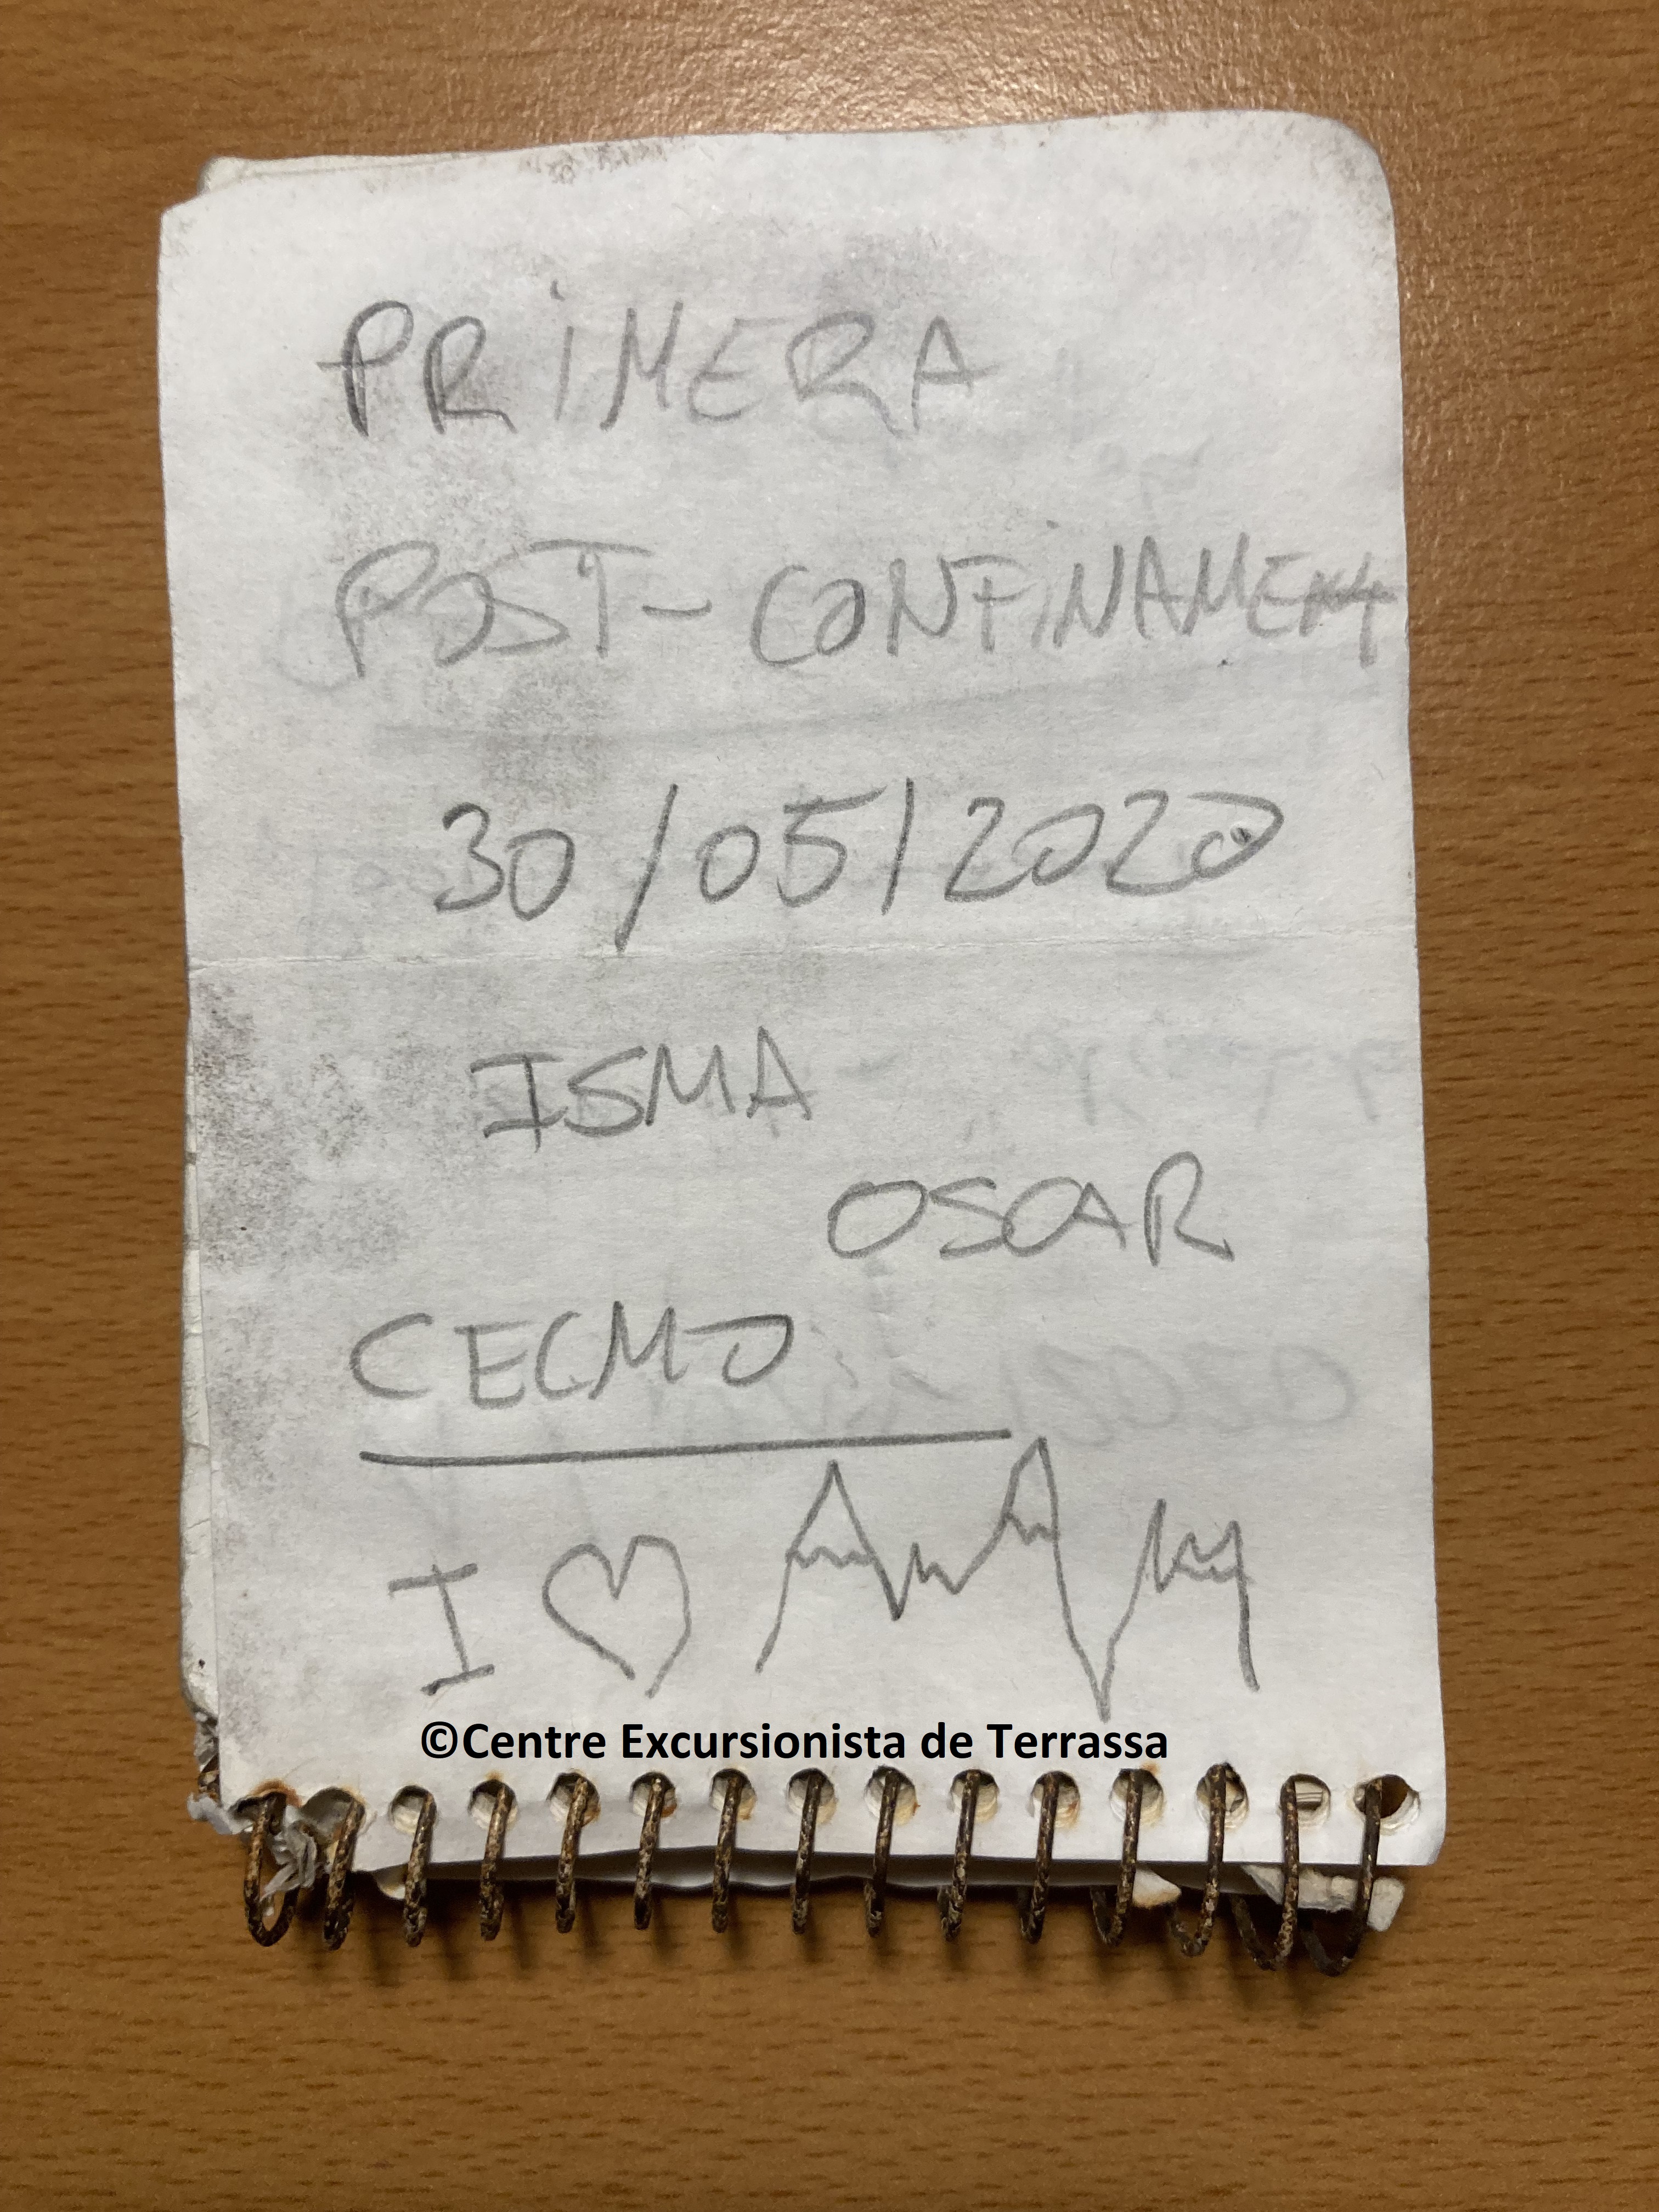 PRIMERA
POST-CONFINAMENT
30/05/2020
ISMA
OSCAR
CECMO
I
©Centre Excursionista de Terrassa